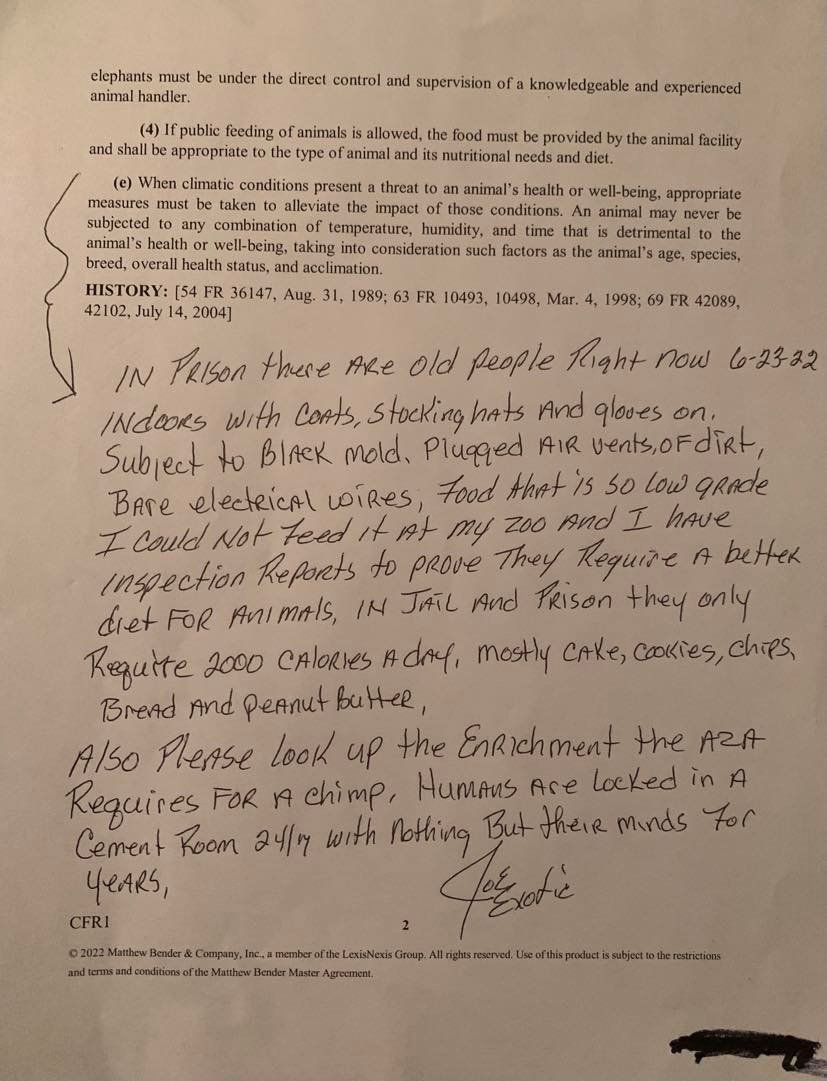 elephants must be under the direct control and supervision of a knowledgeable and experienced
animal handler.
(4) If public feeding of animals is allowed, the food must be provided by the animal facility
and shall be appropriate to the type of animal and its nutritional needs and diet.
(e) When climatic conditions present a threat to an animal's health or well-being, appropriate
measures must be taken to alleviate the impact of those conditions. An animal may never be
subjected to any combination of temperature, humidity, and time that is detrimental to the
animal's health or well-being, taking into consideration such factors as the animal's age, species,
breed, overall health status, and acclimation.
HISTORY: [54 FR 36147, Aug. 31, 1989; 63 FR 10493, 10498, Mar. 4, 1998; 69 FR 42089,
42102, July 14, 2004]
IN PRISON there ARE old people Right now 6-23-22
INdoors with COATS, Stocking hats And gloves on.
Subject to BlACK mold, Plugged AIR vents, OF dIRT,
BARe electRICAl WIRES, Food thAt is so low gRAde
I could Not Feed it At my zoo And I hAve
inspection RePoRts to PROVE They Require A betteR
diet FOR ANIMALS, IN JAIL And PRISON they only
Require 2000 CAlORIes A dAy, mostly CAKe, COOKIes, ChIPS,
BReAd And PeANut ButteR,
Also PleASe look up the EnRichment the AZA
Requires FOR A chimp, HumANs Are locked in A
Cement Room 24/7 with Nothing But theiR minds For
yeARS,
Joe
Exotic
CFR1
2
© 2022 Matthew Bender & Company, Inc., a member of the LexisNexis Group. All rights reserved. Use of this product is subject to the restrictions
and terms and conditions of the Matthew Bender Master Agreement.